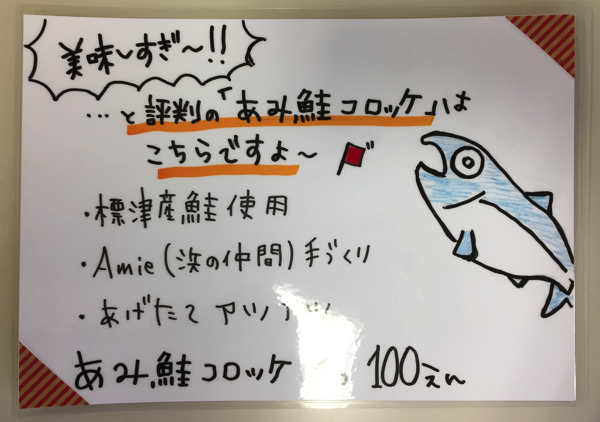 美味〜すぎ〜!!
…と評判の「あみ鮭コロッケ」は
こちらですよ〜
・標津産鮭使用
・Amie(浜の仲間)手づくり
・あげたて アツアツ
あみ鮭コロッケ 100えん